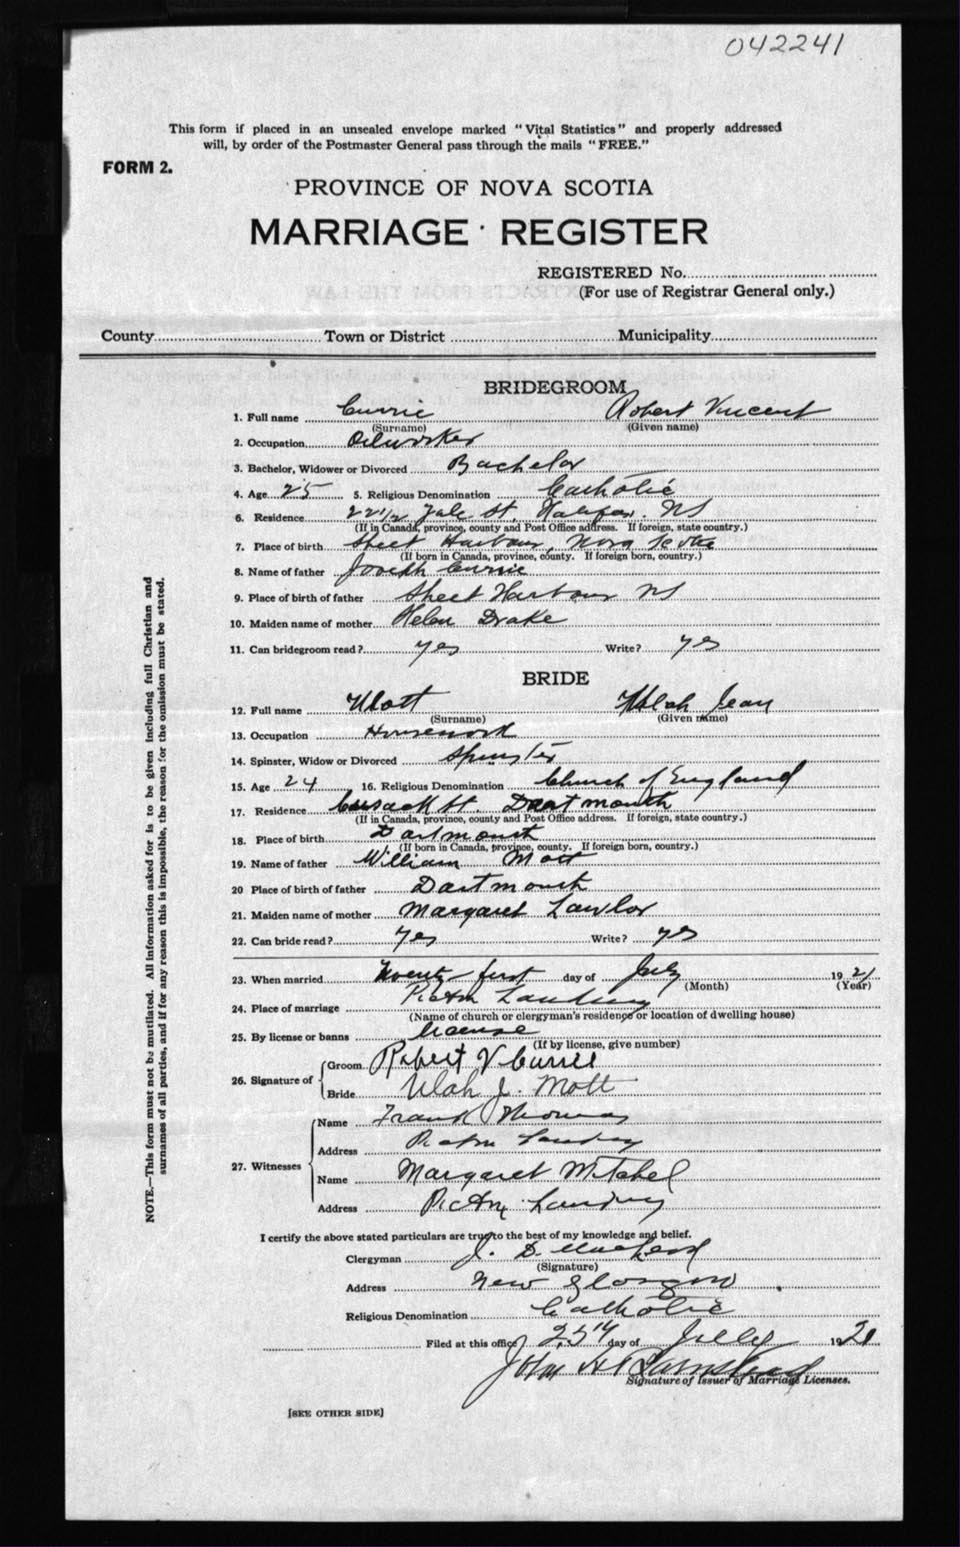 042241
This form if placed in an unsealed envelope marked "Vital Statistics" and properly addressed
will, by order of the Postmaster General pass through the mails "FREE."
FORM 2.
PROVINCE OF NOVA SCOTIA
MARRIAGE REGISTER
REGISTERED No.
(For use of Registrar General only.)
County Town or District Municipality
BRIDEGROOM
1. Full name Currie Robert Vincent
(Surname) (Given name)
2. Occupation Oilworker
3. Bachelor, Widower or Divorced Bachelor
4. Age 25 5. Religious Denomination Catholic
6. Residence 22 1/2 Yale St, Halifax NS
(If in Canada, province, county and Post Office address. If foreign, state country.)
7. Place of birth Sheet Harbour, Nova Scotia
(If born in Canada, province, county. If foreign born, country.)
8. Name of father Joseph Currie
9. Place of birth of father Sheet Harbour NS
10. Maiden name of mother Helen Drake
11. Can bridegroom read? yes Write? yes
BRIDE
12. Full name Mott Ulah Jean
(Surname) (Given name)
13. Occupation Housework
14. Spinster, Widow or Divorced Spinster
15. Age 24 16. Religious Denomination Church of England
17. Residence Cusack St. Dartmouth
(If in Canada, province, county and Post Office address. If foreign, state country.)
18. Place of birth Dartmouth
(If born in Canada, province, county. If foreign born, country.)
19. Name of father William Mott
20 Place of birth of father Dartmouth
21. Maiden name of mother Margaret Lawlor
22. Can bride read? yes Write? yes
23. When married Twenty-first day of July 1921
(Month) (Year)
24. Place of marriage Pictou Landing
(Name of church or clergyman's residence or location of dwelling house)
25. By license or banns license
(If by license, give number)
26. Signature of Groom Robert V Currie
Bride Ulah J. Mott
27. Witnesses Name Frank Thomas
Address Pictou Landing
Name Margaret Mitchel
Address Pictou Landing
I certify the above stated particulars are true to the best of my knowledge and belief.
Clergyman J. D. MacLeod
(Signature)
Address New Glasgow
Religious Denomination Catholic
Filed at this office 25th day of July 1921
John H Barnstead
Signature of Issuer of Marriage Licenses.
[SEE OTHER SIDE]
NOTE.—This form must not be mutilated. All information asked for is to be given including full Christian and
surnames of all parties, and if for any reason this is impossible, the reason for the omission must be stated.